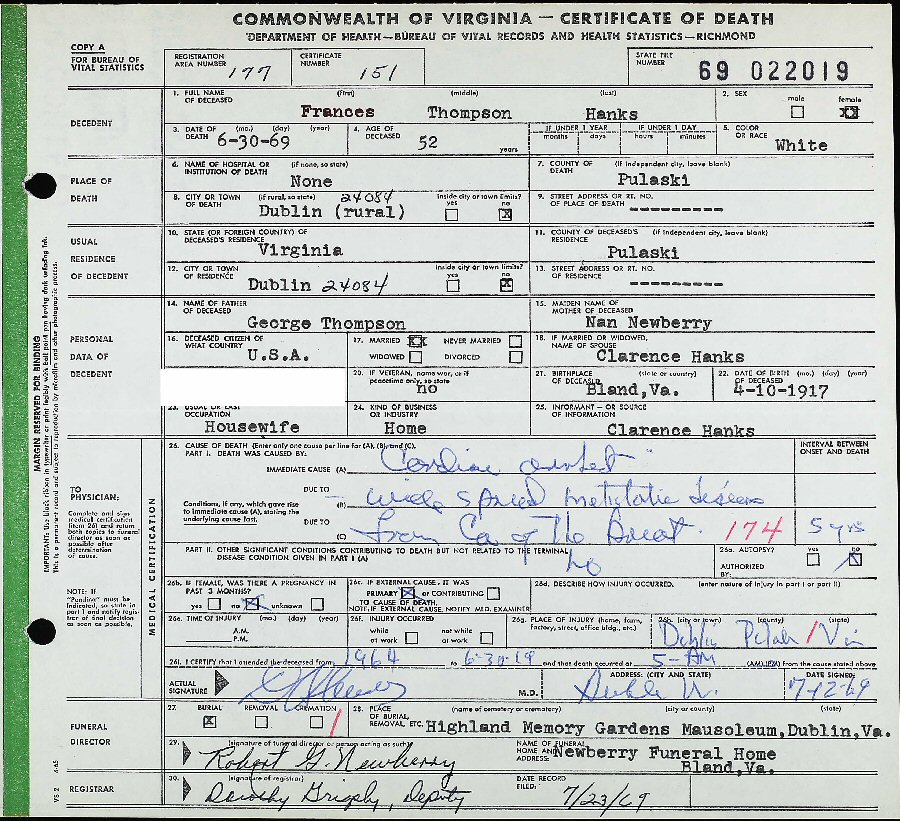 COMMONWEALTH OF VIRGINIA — CERTIFICATE OF DEATH
DEPARTMENT OF HEALTH—BUREAU OF VITAL RECORDS AND HEALTH STATISTICS—RICHMOND
COPY A
FOR BUREAU OF
VITAL STATISTICS
REGISTRATION AREA NUMBER 177 CERTIFICATE NUMBER 151 STATE FILE NUMBER 69 022019
DECEDENT
1. FULL NAME OF DECEASED (first) (middle) (last) 2. SEX male female
Frances Thompson Hanks
3. DATE OF DEATH (mo.) (day) (year) 6-30-69 4. AGE OF DECEASED 52 years IF UNDER 1 YEAR months days IF UNDER 1 DAY hours minutes 5. COLOR OR RACE White
PLACE OF
DEATH
6. NAME OF HOSPITAL OR INSTITUTION OF DEATH (if none, so state) None 7. COUNTY OF DEATH (if independent city, leave blank) Pulaski
8. CITY OR TOWN OF DEATH (if rural, so state) 24084 Dublin (rural) inside city or town limits? yes no 9. STREET ADDRESS OR RT. NO. OF PLACE OF DEATH
USUAL
RESIDENCE
OF DECEDENT
10. STATE (OR FOREIGN COUNTRY) OF DECEASED'S RESIDENCE Virginia 11. COUNTY OF DECEASED'S RESIDENCE (if independent city, leave blank) Pulaski
12. CITY OR TOWN OF RESIDENCE Dublin 24084 inside city or town limits? yes no 13. STREET ADDRESS OR RT. NO. OF RESIDENCE
PERSONAL
DATA OF
DECEDENT
14. NAME OF FATHER OF DECEASED George Thompson 15. MAIDEN NAME OF MOTHER OF DECEASED Nan Newberry
16. DECEASED CITIZEN OF WHAT COUNTRY U.S.A. 17. MARRIED NEVER MARRIED WIDOWED DIVORCED 18. IF MARRIED OR WIDOWED, NAME OF SPOUSE Clarence Hanks
20. IF VETERAN, name war, or if peacetime only, so state no 21. BIRTHPLACE OF DECEASED (state or country) Bland,Va. 22. DATE OF BIRTH OF DECEASED (mo.) (day) (year) 4-10-1917
23. USUAL OR LAST OCCUPATION Housewife 24. KIND OF BUSINESS OR INDUSTRY Home 25. INFORMANT - OR SOURCE OF INFORMATION Clarence Hanks
TO
PHYSICIAN:
Complete and sign
medical certification
(item 26) and return
both copies to funeral
director as soon as
possible after
determination
of cause.
NOTE: If
"Pending" must be
indicated, so state in
part I and notify regis-
trar of final decision
as soon as possible.
MEDICAL CERTIFICATION
26. CAUSE OF DEATH (Enter only one cause per line for (A), (B), and (C).
PART I. DEATH WAS CAUSED BY: INTERVAL BETWEEN ONSET AND DEATH
IMMEDIATE CAUSE (A) Cardiac arrest
Conditions, if any, which gave rise to immediate cause (A), stating the underlying cause last.
DUE TO (B) wide spread metastatic disease
DUE TO (C) from Ca of The Breast 174 5 yrs
PART II. OTHER SIGNIFICANT CONDITIONS CONTRIBUTING TO DEATH BUT NOT RELATED TO THE TERMINAL DISEASE CONDITION GIVEN IN PART I (A) No 26a. AUTOPSY? yes no AUTHORIZED BY:
26b. IF FEMALE, WAS THERE A PREGNANCY IN PAST 3 MONTHS? yes no unknown 26c. IF EXTERNAL CAUSE, IT WAS PRIMARY or CONTRIBUTING TO CAUSE OF DEATH. NOTE: IF EXTERNAL CAUSE, NOTIFY MED. EXAMINER 26d. DESCRIBE HOW INJURY OCCURRED. (enter nature of injury in part I or part II)
26e. TIME OF INJURY (mo.) (day) (year) A.M. P.M. 26f. INJURY OCCURRED while at work not while at work 26g. PLACE OF INJURY (home, farm, factory, street, office bldg., etc.) 26h. (city or town) (county) (state) Dublin
26i. I CERTIFY that I attended the deceased from 1964 to 6-30-69 and that death occurred at 5- AM (AM) (PM) from the cause stated above.
ACTUAL SIGNATURE M.D. ADDRESS: (CITY AND STATE) DATE SIGNED: 7-12-69
FUNERAL
DIRECTOR
27. BURIAL REMOVAL CREMATION 28. PLACE OF BURIAL, REMOVAL, ETC. (name of cemetery or crematory) (city or county) (state)
Highland Memory Gardens Mausoleum,Dublin,Va.
29. (signature of funeral director or person acting as such) Robert G. Newberry NAME OF FUNERAL HOME AND ADDRESS: Newberry Funeral Home
Bland,Va.
REGISTRAR
30. (signature of registrar) Dorothy Grigsby, Deputy DATE RECORD FILED: 7/23/69
MARGIN RESERVED FOR BINDING
VS 2 6-65